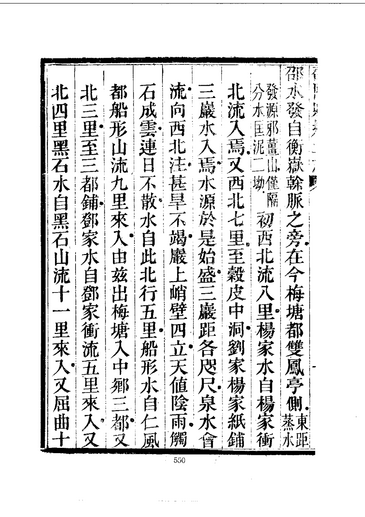 邵水發自衡嶽幹脈之旁在今梅塘都雙鳳亭側東距蒸水
發源邪薑山僅隔分水匡泥二坳初西北流八里楊家水自楊家衝
北流入焉又西北七里至穀皮中洞劉家楊家紙鋪
三巖水入焉水源於是始盛三巖距各咫尺泉水會
流向西北注甚旱不竭巖上峭壁四立天値陰雨觸
石成雲連日不散水自此北行五里船形水自仁風
都船形山流九里來入由兹出梅塘入中鄉三都又
北三里至三都鋪鄧家水自鄧家衝流五里來入又
北四里黑石水自黑石山流十一里來入又屈曲十
550